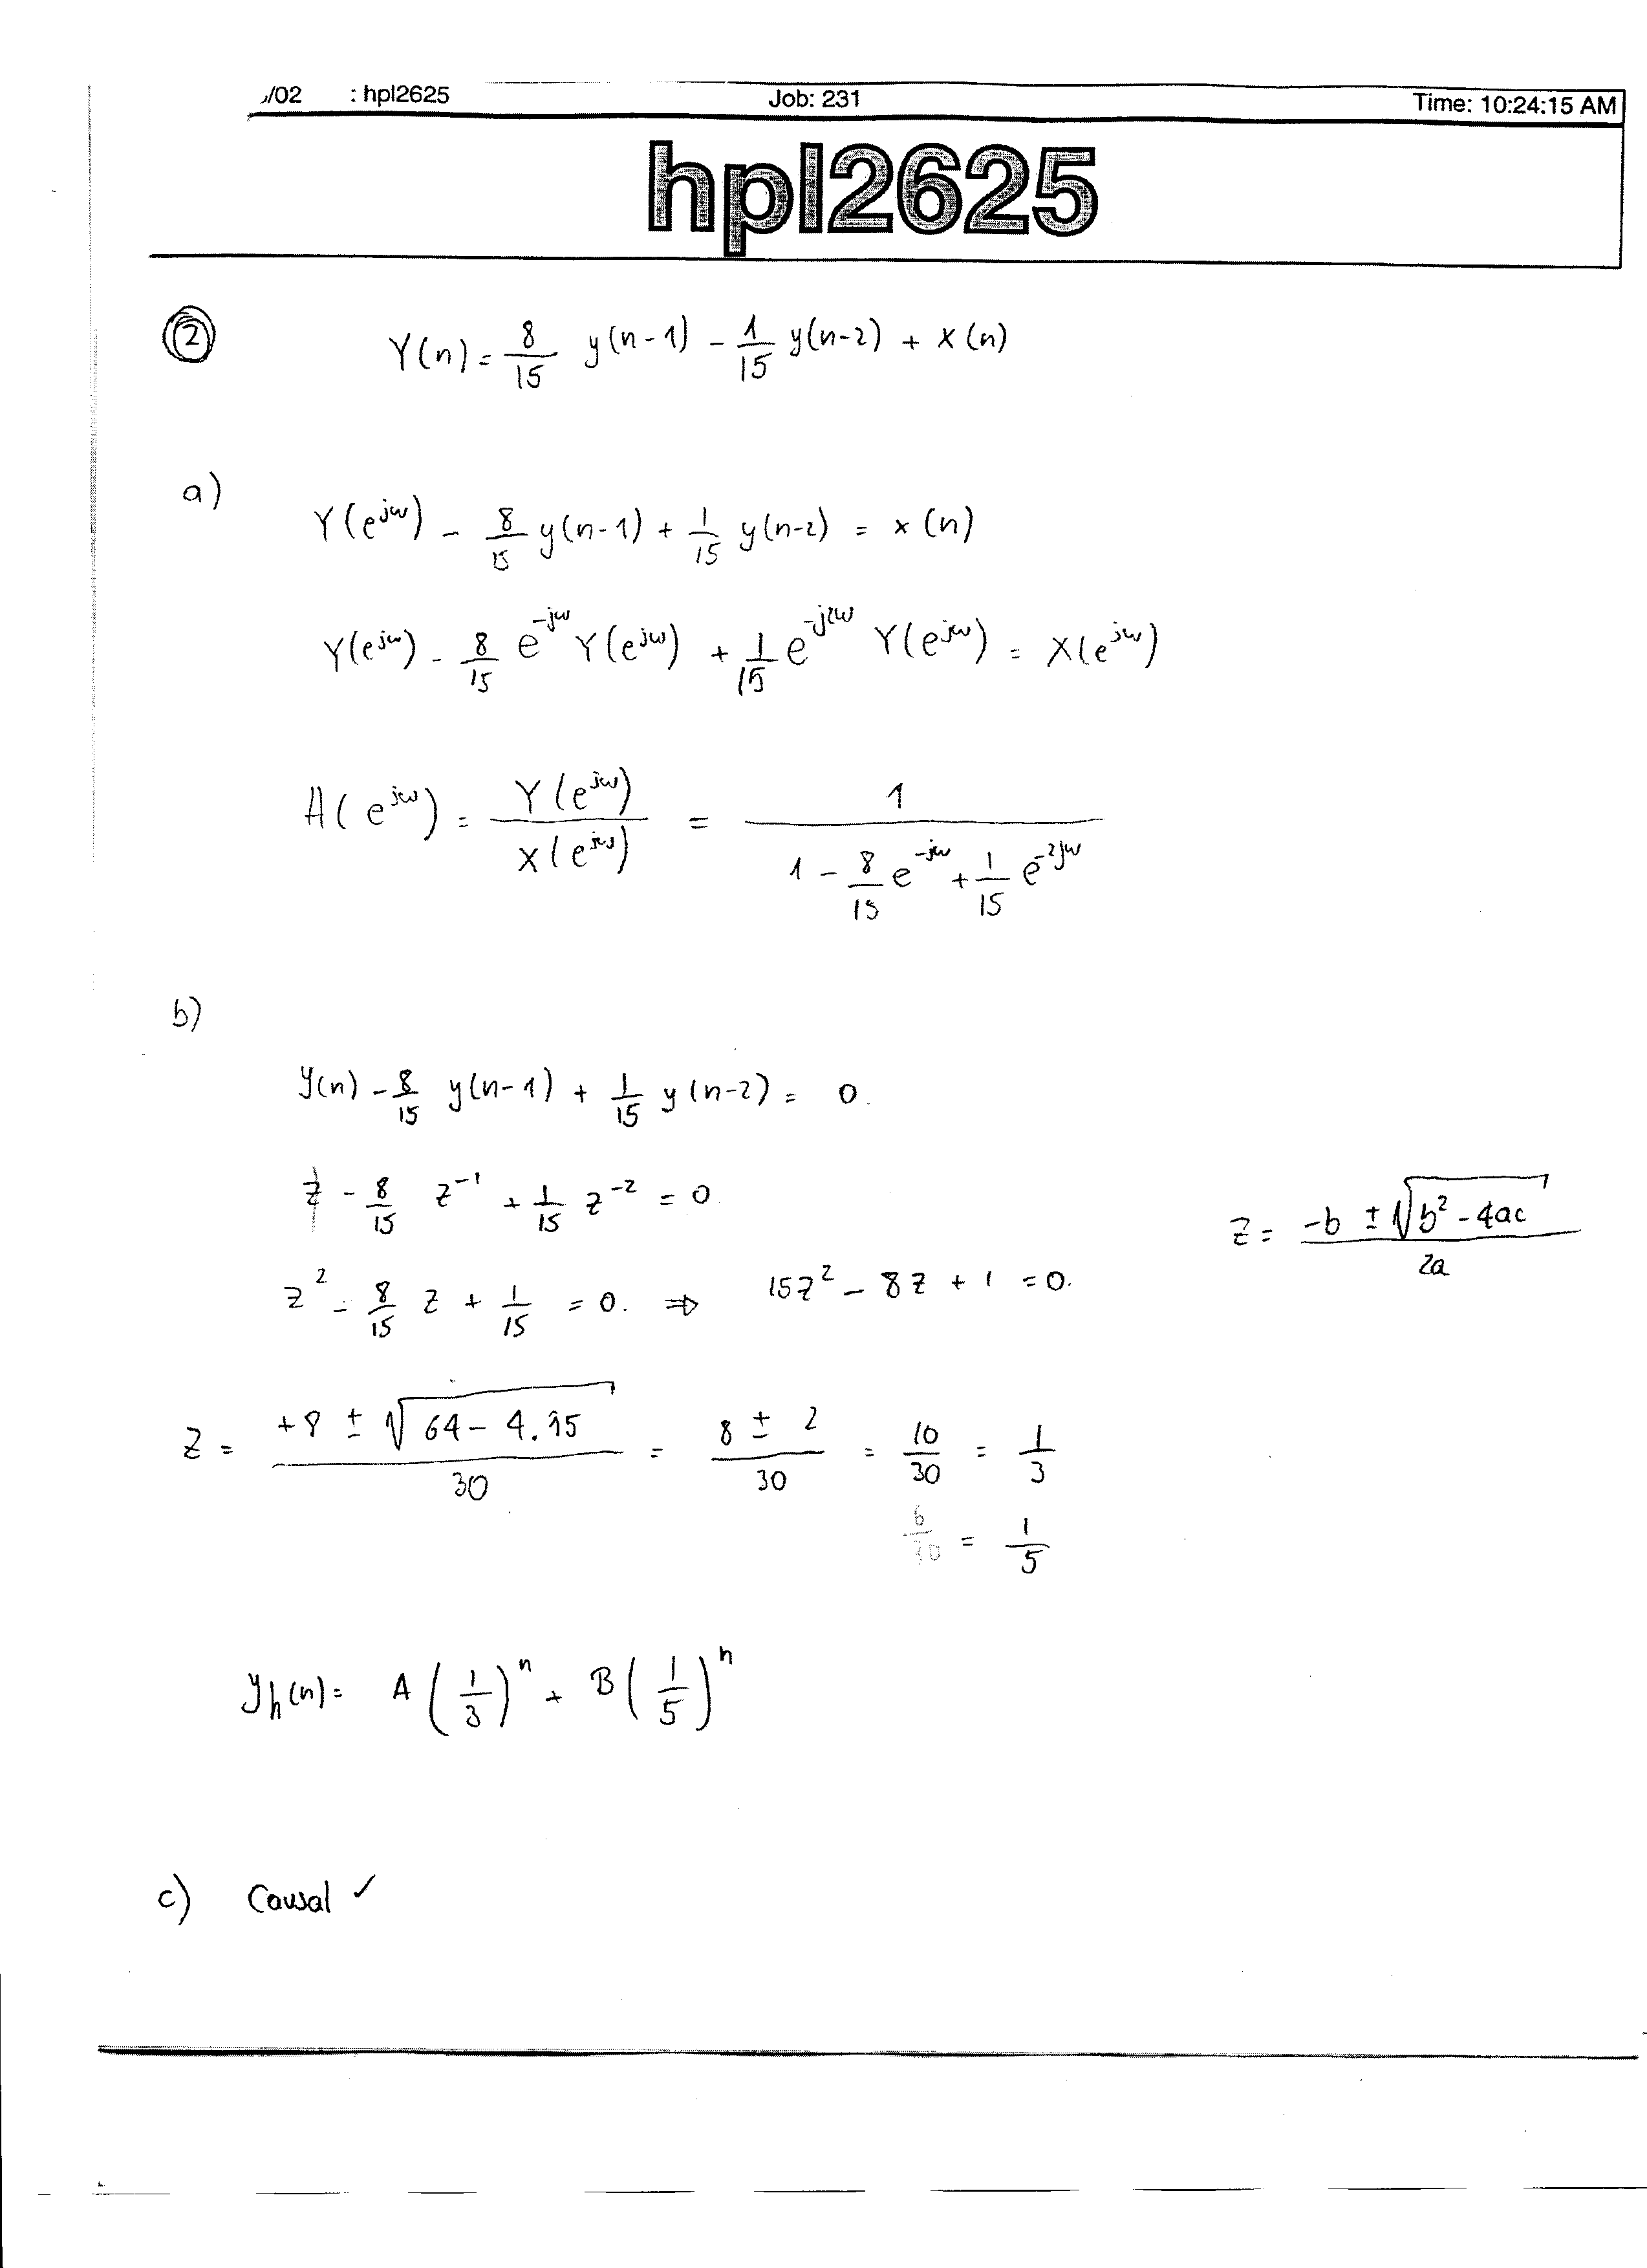 /02 : hpl2625 Job: 231 Time: 10:24:15 AM
hpl2625
② Y(n) = 8/15 y(n-1) - 1/15 y(n-2) + x(n)
a)
Y(e^{jω}) - 8/15 y(n-1) + 1/15 y(n-2) = x(n)
Y(e^{jω}) - 8/15 e^{-jω} Y(e^{jω}) + 1/15 e^{-j2ω} Y(e^{jω}) = X(e^{jω})
H(e^{jω}) = Y(e^{jω}) / X(e^{jω}) = 1 / (1 - 8/15 e^{-jω} + 1/15 e^{-2jω})
b)
y(n) - 8/15 y(n-1) + 1/15 y(n-2) = 0.
1 - 8/15 z^{-1} + 1/15 z^{-2} = 0
z = (-b ± √(b² - 4ac)) / 2a
z² - 8/15 z + 1/15 = 0. ⇒ 15z² - 8z + 1 = 0.
z = (+8 ± √(64 - 4.15)) / 30 = (8 ± 2) / 30 = 10/30 = 1/3
6/30 = 1/5
y_h(n) = A (1/3)^n + B (1/5)^n
c) Causal ✓